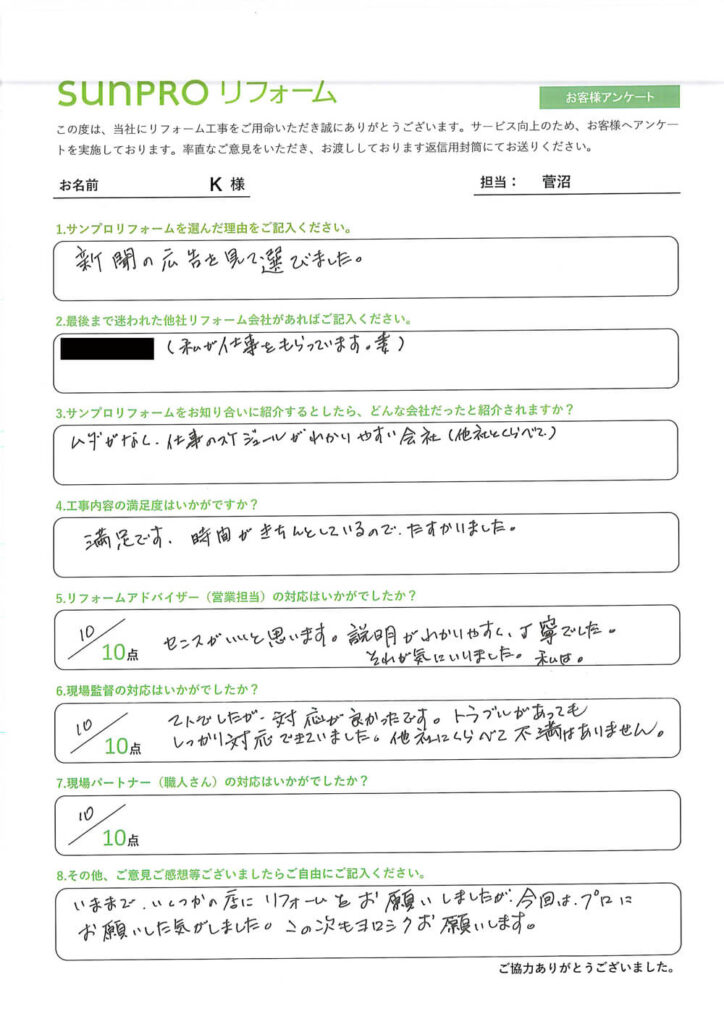 sunPRO リフォーム
お客様アンケート
この度は、当社にリフォーム工事をご用命いただき誠にありがとうございます。サービス向上のため、お客様へアンケー
トを実施しております。率直なご意見をいただき、お渡ししております返信用封筒にてお送りください。
お名前 K 様
担当： 菅沼
1.サンプロリフォームを選んだ理由をご記入ください。
新聞の広告を見て選びました。
2.最後まで迷われた他社リフォーム会社があればご記入ください。
(私が仕事をもらっています。妻)
3.サンプロリフォームをお知り合いに紹介するとしたら、どんな会社だったと紹介されますか？
ムダがなく、仕事のスケジュールがわかりやすい会社(他社とくらべて)
4.工事内容の満足度はいかがですか？
満足です、時間がきちんとしているので、たすかりました。
5.リフォームアドバイザー（営業担当）の対応はいかがでしたか？
10/10点
センスがいいと思います。説明がわかりやすく、丁寧でした。
それが気にいりました。私は。
6.現場監督の対応はいかがでしたか？
10/10点
でしたが、対応が良かったです。トラブルがあっても
しっかり対応できていました。他社にくらべて不満はありません。
7.現場パートナー（職人さん）の対応はいかがでしたか？
10/10点
8.その他、ご意見ご感想等ございましたらご自由にご記入ください。
いままで、いくつかの店にリフォームをお願いしましたが、今回は、プロに
お願いした気がしました。この次もヨロシクお願いします。
ご協力ありがとうございました。